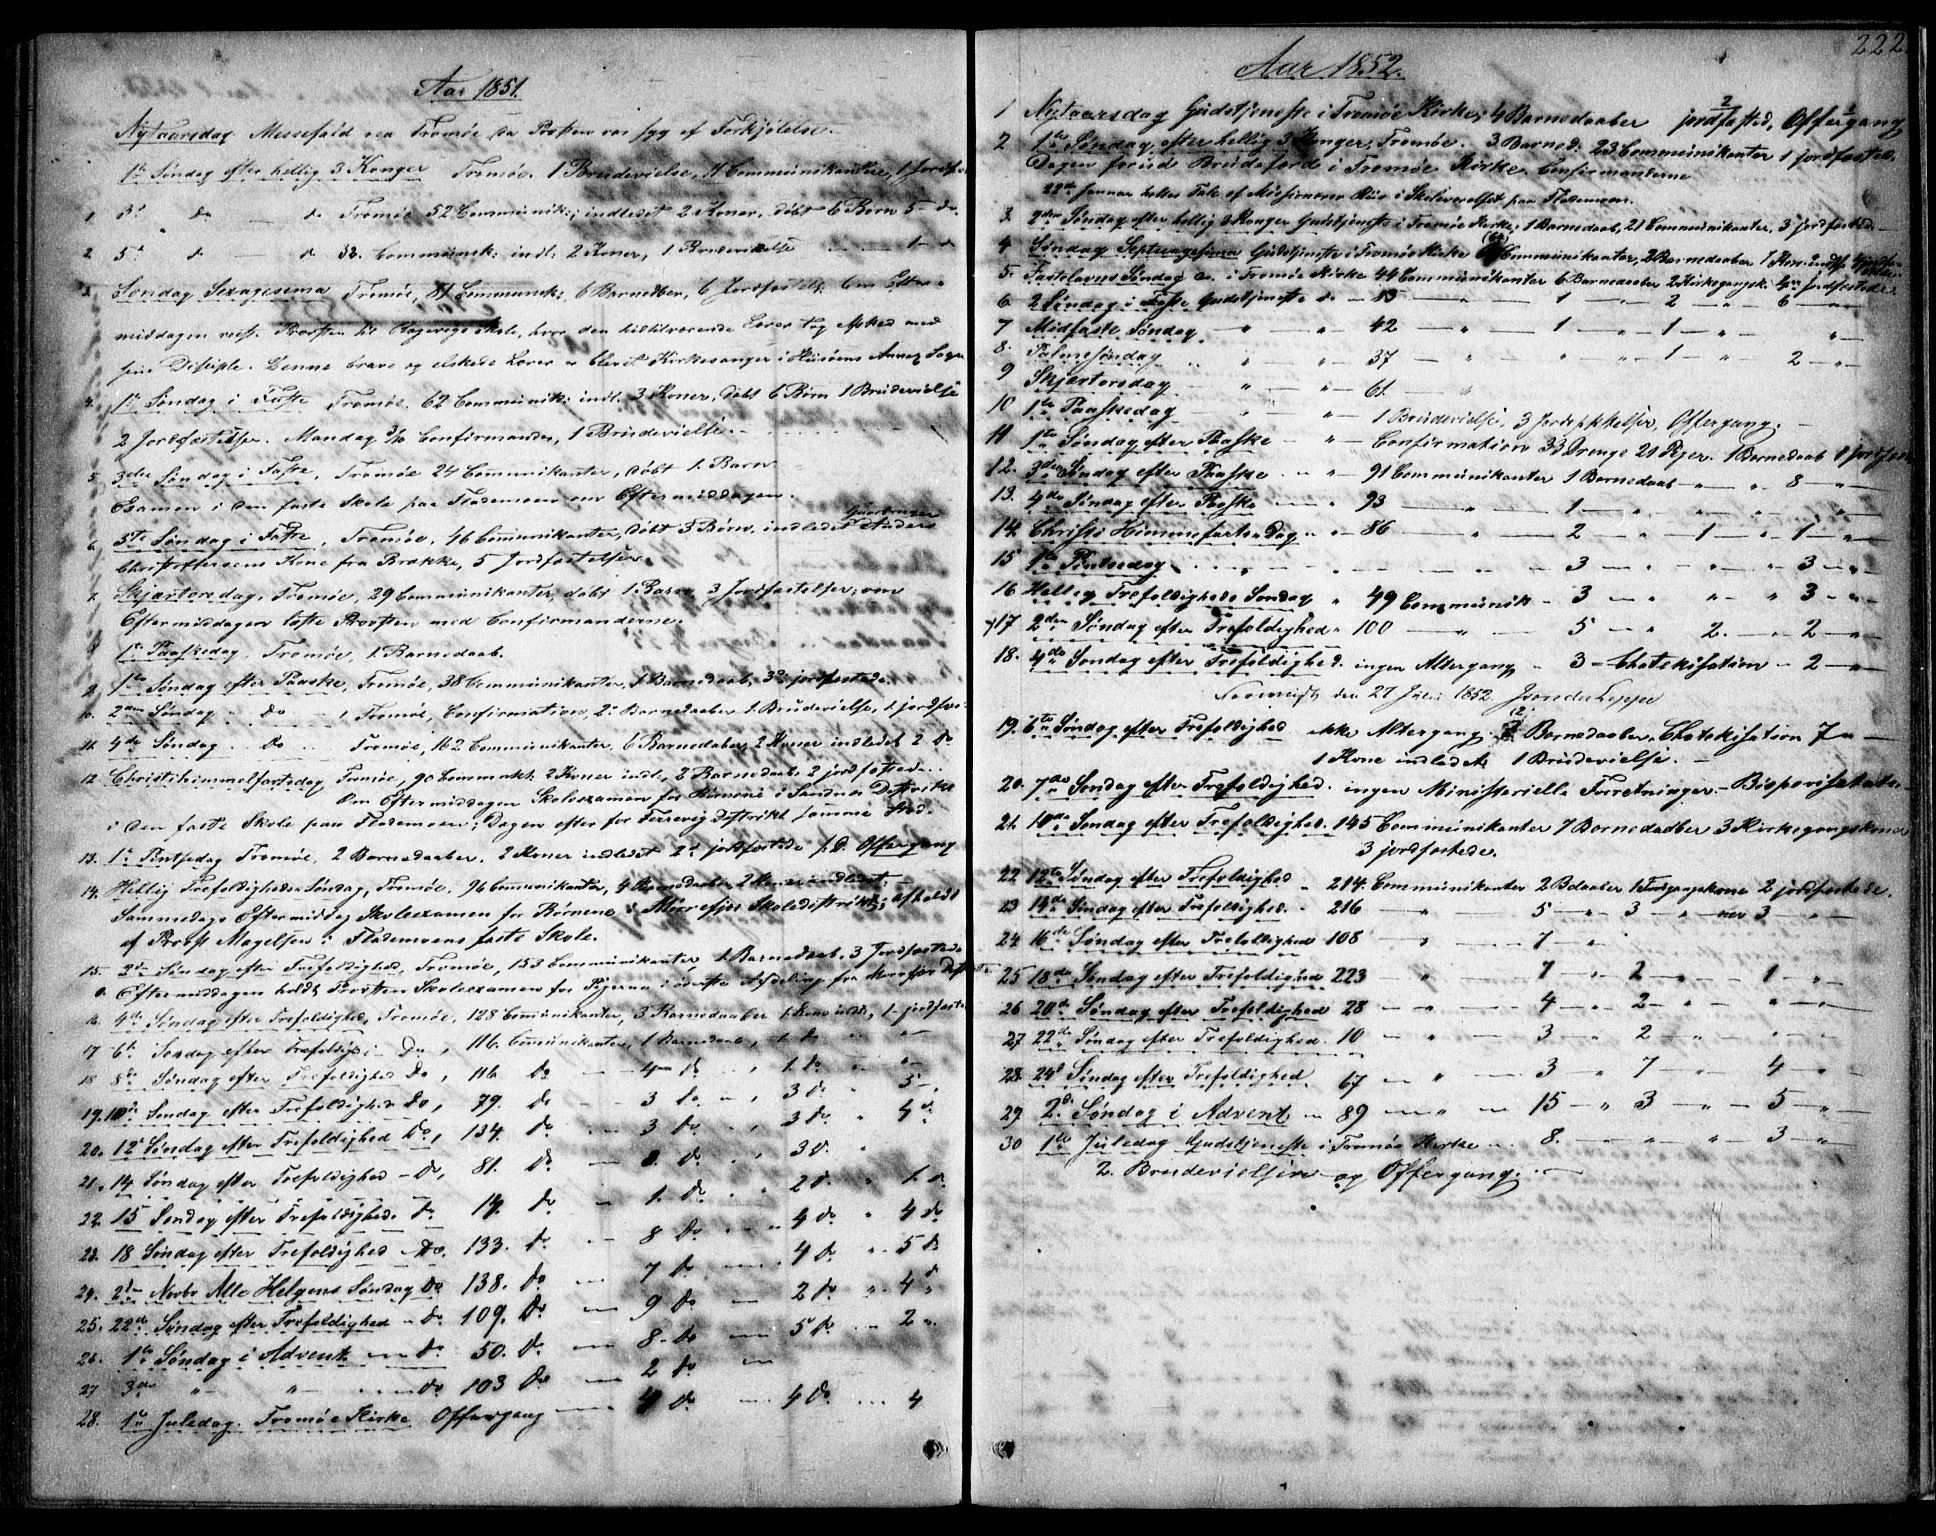 Aar 1851.
Nytaarsdag Messefald ved Tromøe da Provsten var syg af Forkjølelse.
1ste Søndag efter hellig 3 Konger Tromøe. 1 Brudevielse, Communikantere, 1 Jordfæs
1 3d do — do Tromøe 52 Communik; indledet 2 Koner, døbt 6 Børn 5 do.
2 5t do — do 32 Communik: indl: 2 Koner, 1 Brudevielse
3 Søndag Sexagesima Tromøe, 81 Communik; 6 Barnedåber, 6 Jordfæstels. Om Efter-
middagen reiste Provsten til skole, hvor den hidtilværende Lærer tog Afsked med
sine Disciple. Denne brave og elskede Lærer er blevet Kirkesanger i Annex Sogn
4. 1ste Søndag i Faste Tromøe. 62 Communik; indl. 3 Koner, døbt 6 Børn 1 Brudevielse
2 Jordfæstelser. Mandag Confirmander, 1 Brudevielse.
5 3die Søndag i Faste, Tromøe 24 Comunikanter, døbt 1 Barn
Examen i den faste Skole paa Flademoen om Eftermiddagen.
6. 5te Søndag i Faste, Tromøe, 46 Comunikanter, døbt 3 Børn, indledet Anders
Christophersens Kone fra Brække, 5 Jordfæstelser.
7. Skjærtorsdag, Tromøe, 29 Communikanter, døbt 1 Barn, 3 Jordfæstelser; om
Eftermiddagen læste Provsten med Confirmanderne.
8 1ste Paaskedag, Tromøe, 1. Barnedaab.
9. 1ste Søndag efter Paaske, Tromøe, 38 Communikanter, 1 Barnedaab, 3 jordfæstede.
10. 2den Søndag do Tromøe, Confirmation, 2 Barnedaaber 1. Brudevielse, 1. jordfæs
11. 4de Søndag do Tromøe, 162 Communikanter, 6 Barnedaaber, 2 Koner indledet 2 do
12. Christihimmelfartsdag Tromøe, 90 Commukt. 2 Koner indl., 2 Barnedaab. 2 jordfæstede.
Om Eftermiddagen Skoleexamen for Børnene i Sandnes Distrikt
i den faste Skole paa Flademoen; Dagen efter for Færevig Distrikt samme Sted.
13. 1ste Pintsedag Tromøe, 2 Barnedaaber, 2 Koner indledet 2 jordfæstede s.D. Offergang
14. Hellig Trefoldigheds Søndag, Tromøe, 96 Communikanter, 4 Barnedaaber, 2 Koner indledet.
Sammedags Eftermiddag Skoleexamen for Børnene i Morrefjær Skoledistrikt; afholdt
af Provst Magelssen i Flademoens faste Skole.
15. 2den Søndag efter Trefoldighed, Tromøe, 153 Communikanter, 1 Barnedaab. 3 Jordfæstede
Eftermiddagen holdt Provsten Skoleexamen for Pigerne i øverste Afdeling fra Morrefjær Distr
16. 4de Søndag efter Trefoldighed, Tromøe, 128 Communikanter, 3 Barnedaaber 1 Kone indl., 1. jordfæstet
17 6te Søndag efter Trefoldigh. Do, 116. Communikanter, 1 Barnedaab, 1. do
18 8de Søndag efter Trefoldighed Do, 116 do — 4 do 1. do
19. 10de Søndag efter Trefoldighed Do, 79. do — 3 do 3 do 5
20. 12 Søndag efter Trefoldighed Do, 134. do — 3 do 3 do 4 d.
21. 14 Søndag efter Trefoldighed — Do, 81. do — 8. do 3 d.
22. 15 Søndag efter Trefoldighed. Do 14. do — 1. do 2 d. 1. d.
23. 18 Søndag efter Trefoldighed — Do. 133. do — 8 do 4 do 4 do
24. 2den Novbr Alle Helgens Søndag Do 138. do — 7 do 4 do 5 do
25. 22de Søndag efter Trefoldighed — Do 109. do — 9 do — 2 do 4 d
26. 1ste Søndag i Advent — do 50. do — 8. do — 5 do 2
27 3de " " do 103 do — 2 do
28. 1ste Juledag. Tromøe Kirke Offergang — 4 do — 4 do 4
222
Aar 1852.
1 Nytaarsdag Gudstjeneste i Tromøe Kirke, 4 Barnedaaber 2 jordfæsted, Offergang
2 1ste Søndag efter hellig 3 Konger, Tromøe. 3 Barned. 23 Communikanter 1 jordfæstel.
Dagen forud Brudefærd i Tromøe Kirke. Confirmanterne
22de Januar holtes Tale af Missionærer i Skoleværelset paa Flademoen.
3. 2den Søndag efter hellig 3 Konger Gudstjeneste i Tromøe Kirke; 1 Barnedaab, 21 Communikanter, 3 jordfæstede.
4 Søndag Septuagesima Gudstjeneste i Tromøe Kirke Communikanter, 2 Barnedaaber 1 Kone indl.
5. Fastelavns Søndag do. i Tromøe Kirke 44 Communikanter 6 Barnedaaber 2 Kirkegangsk. Jordfæstede
6 2 Søndag i Faste Gudstjeneste do — 83 — " — 1 " 2 " 6 "
7 Midfaste Søndag " " 42 — " — 1 " 1 " "
8. Palmesøndag " " 37 — " " 1 " 2 — "
9 Skjærtorsdag " " 61. — "
10 1ste Paaskedag — " " 1 Brudevielse, 3 Jordpaakastelser, Offergang.
11 1ste Søndag efter Paaske — " Confirmation 33 Drenge 21 Piger. 1 Barnedaab 1 jordfæst
12. 3die Søndag efter Paaske " 91 Communikanter 1 Barnedaab — " — 8 — "
13. 4de Søndag efter Paaske " 93 — " — 1 — " "
14. Christi Himmelfarts Dag " 86 — " — 2 — " 1 — " 1 — "
15 1ste Pintsedag — 3 — " " 3 — "
16 Hellig Trefoldigheds Søndag " 49 Communik — 3 — " " 3 — "
17 2den Søndag efter Trefoldighed " 100 — " — 5 — " 2. — " 2 — "
18. 4de Søndag efter Trefoldighed. ingen Altergang — 3 — Chatekisation — 2 — "
den 27 Juli 1852.
19. 6te Søndag efter Trefoldighed ikke Altergang (2) Barnedaaber, Chatekisation 7 —
1 Kone indledet 1 Brudevielse. —
20. 7de Søndag efter Trefoldighed. ingen Ministerielle Forretninger. — Bispevisitats.
21. 10de Søndag efter Trefoldighed. 145 Communikanter 7 Barnedaaber 3 Kirkegangskoner
3 jordfæstede.
22 12te Søndag efter Trefoldighed " 214. Communikanter 2 Bdaaber 1 Indgangskone 2 jordfæstede.
23 14de Søndag efter Trefoldighed. " 216 — " — 5 — " 3 — " 3 — "
24. 16de Søndag efter Trefoldighed 108 — " — 7 — "
25 18de Søndag efter Trefoldighed 223 — " — 7 " 2 — " — 1 — "
26 20de Søndag efter Trefoldighed 28 — " — 4 — " 2 — " "
27 22de Søndag efter Trefoldighed. 10 — " — 3 — " 2 — " "
28. 24d Søndag efter Trefoldighed 67 — " — 3 — " 7 — " 4 — "
29 2d. Søndag i Advent — 89 — " — 15 — " 3 — " — 5 — "
30 1ste Juledag Gudstjeneste i Tromøe Kirke — 8. — " " " 3 — "
2. Brudevielser og Offergang. —